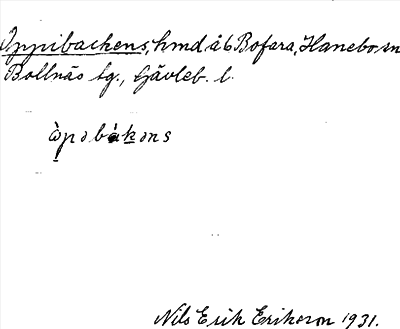 Oppibackens, hmd å 6 Bofara, Hanebo sn
Bollnäs tg., Gävleb. l.
òpobàkons
Nils Erik Erikson 1931.